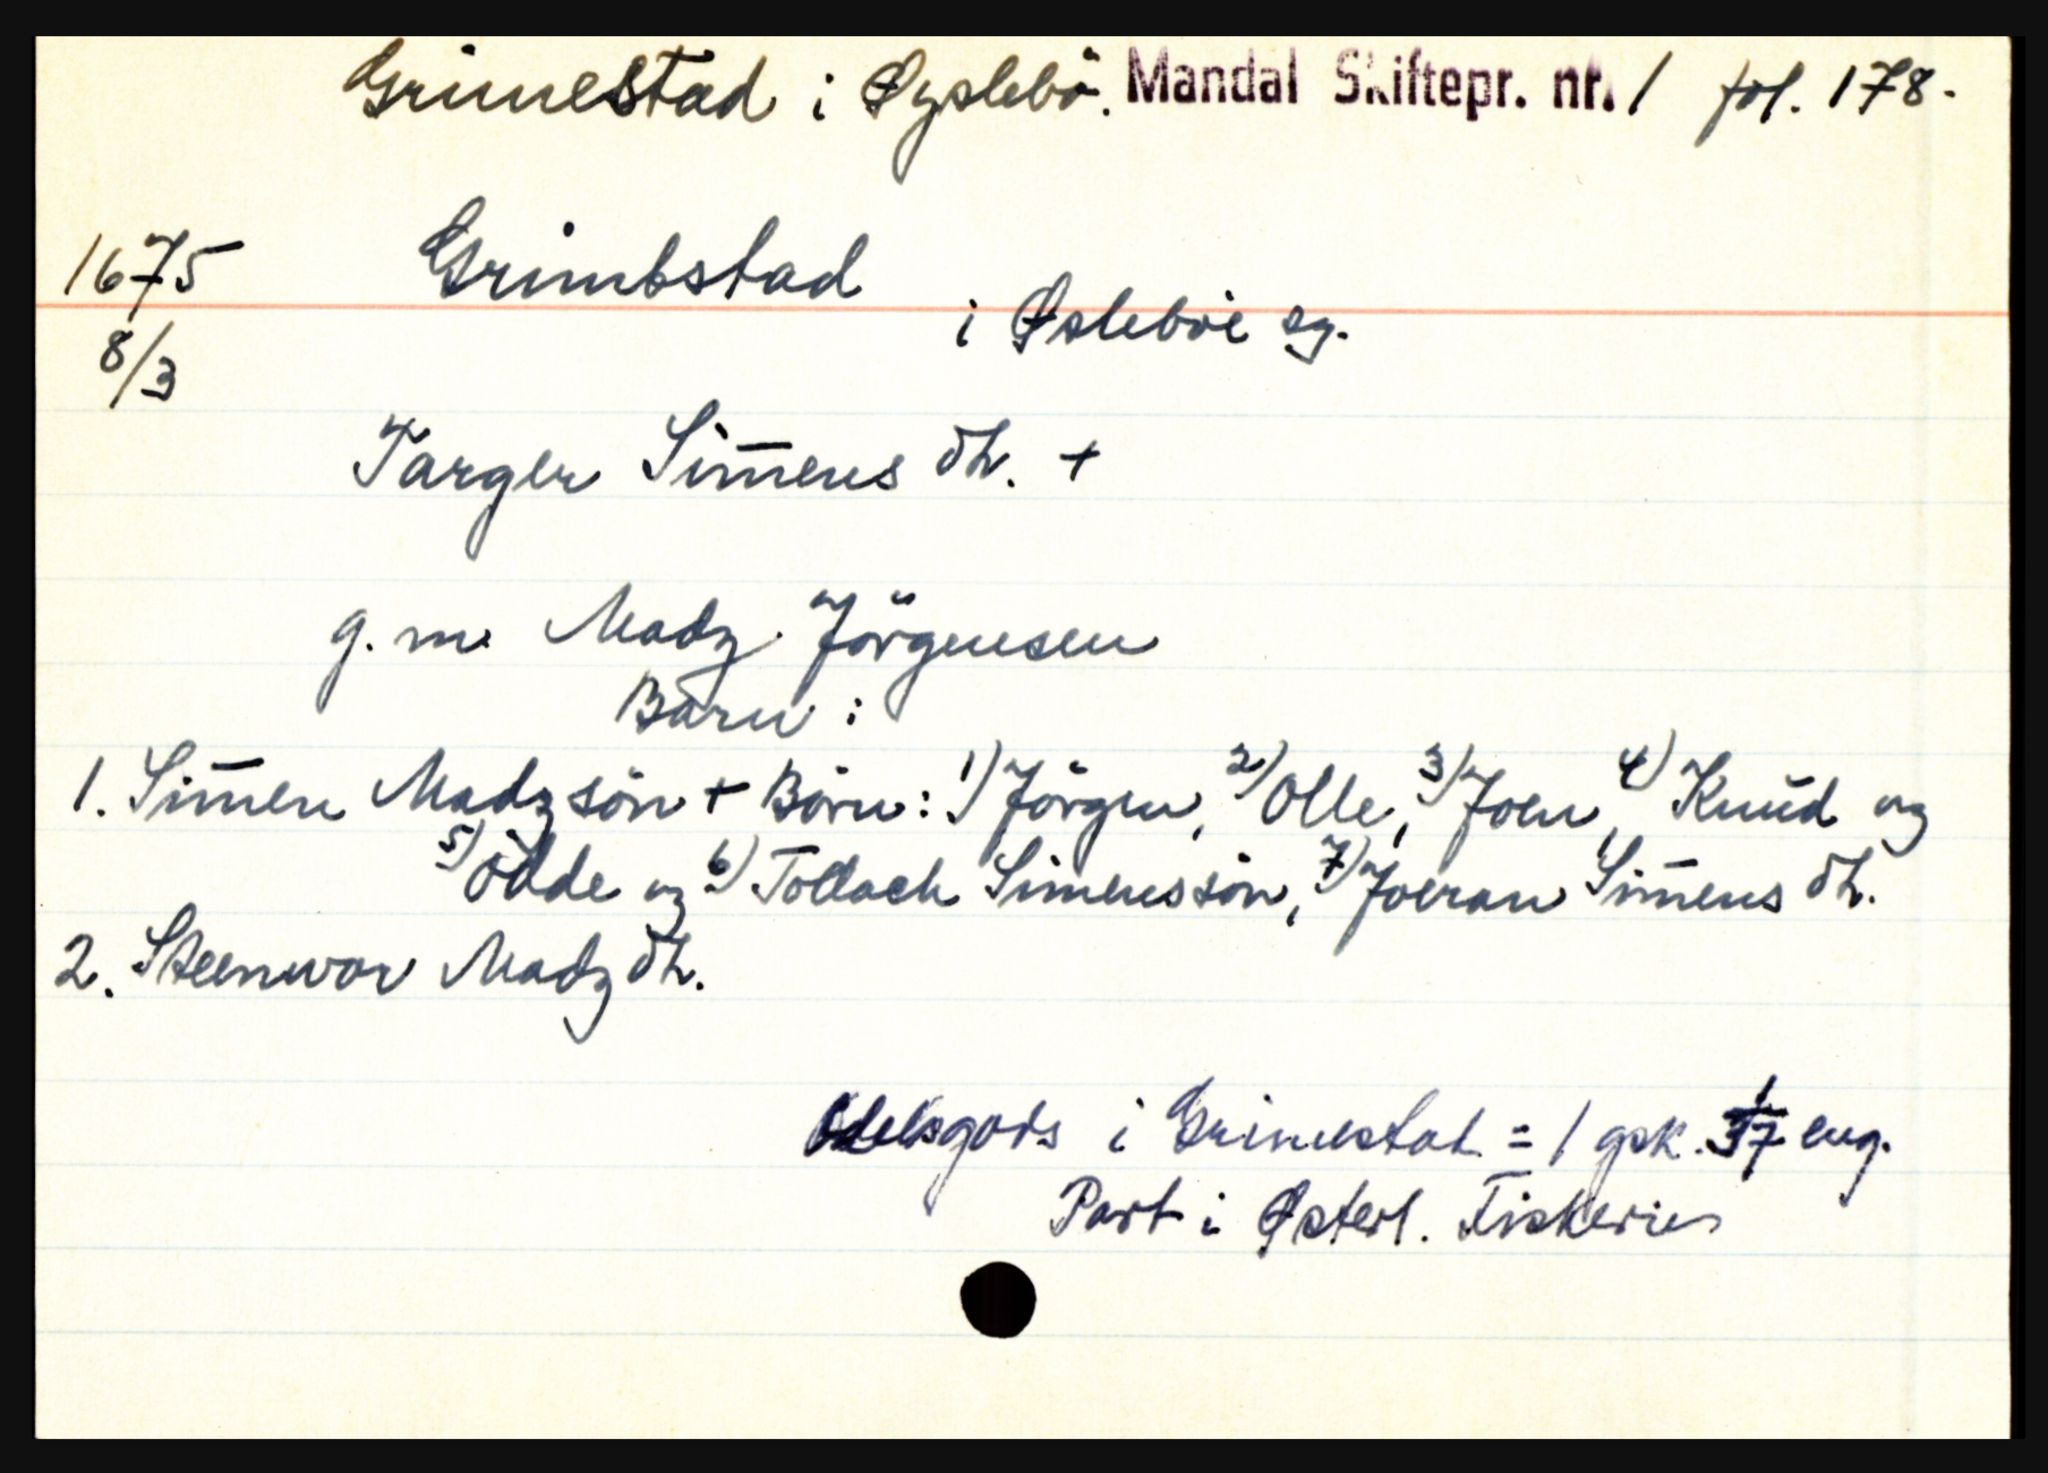 Grimestad i Øyslebö. Mandal Skiftepr. nr. 1 fol. 178.
1675 Grimbstad
i Øsleböe sg.
8/3
Targer Sim̅ens dt. +
g. m. Madz Jörgensen
Börn :
1. Sim̅en Madzsön + Börn: 1) Jörgen, 2) Olle, 3) Joen, 4) Knud og
5) Ödde og 6) Tollach Simenssön, 7) Joeran Sim̅ens dt.
2. Steenwor Madz dt.
Odelsgods i Grimestad = 1 gsk. eng.
Part i Østerl. Fiskerier